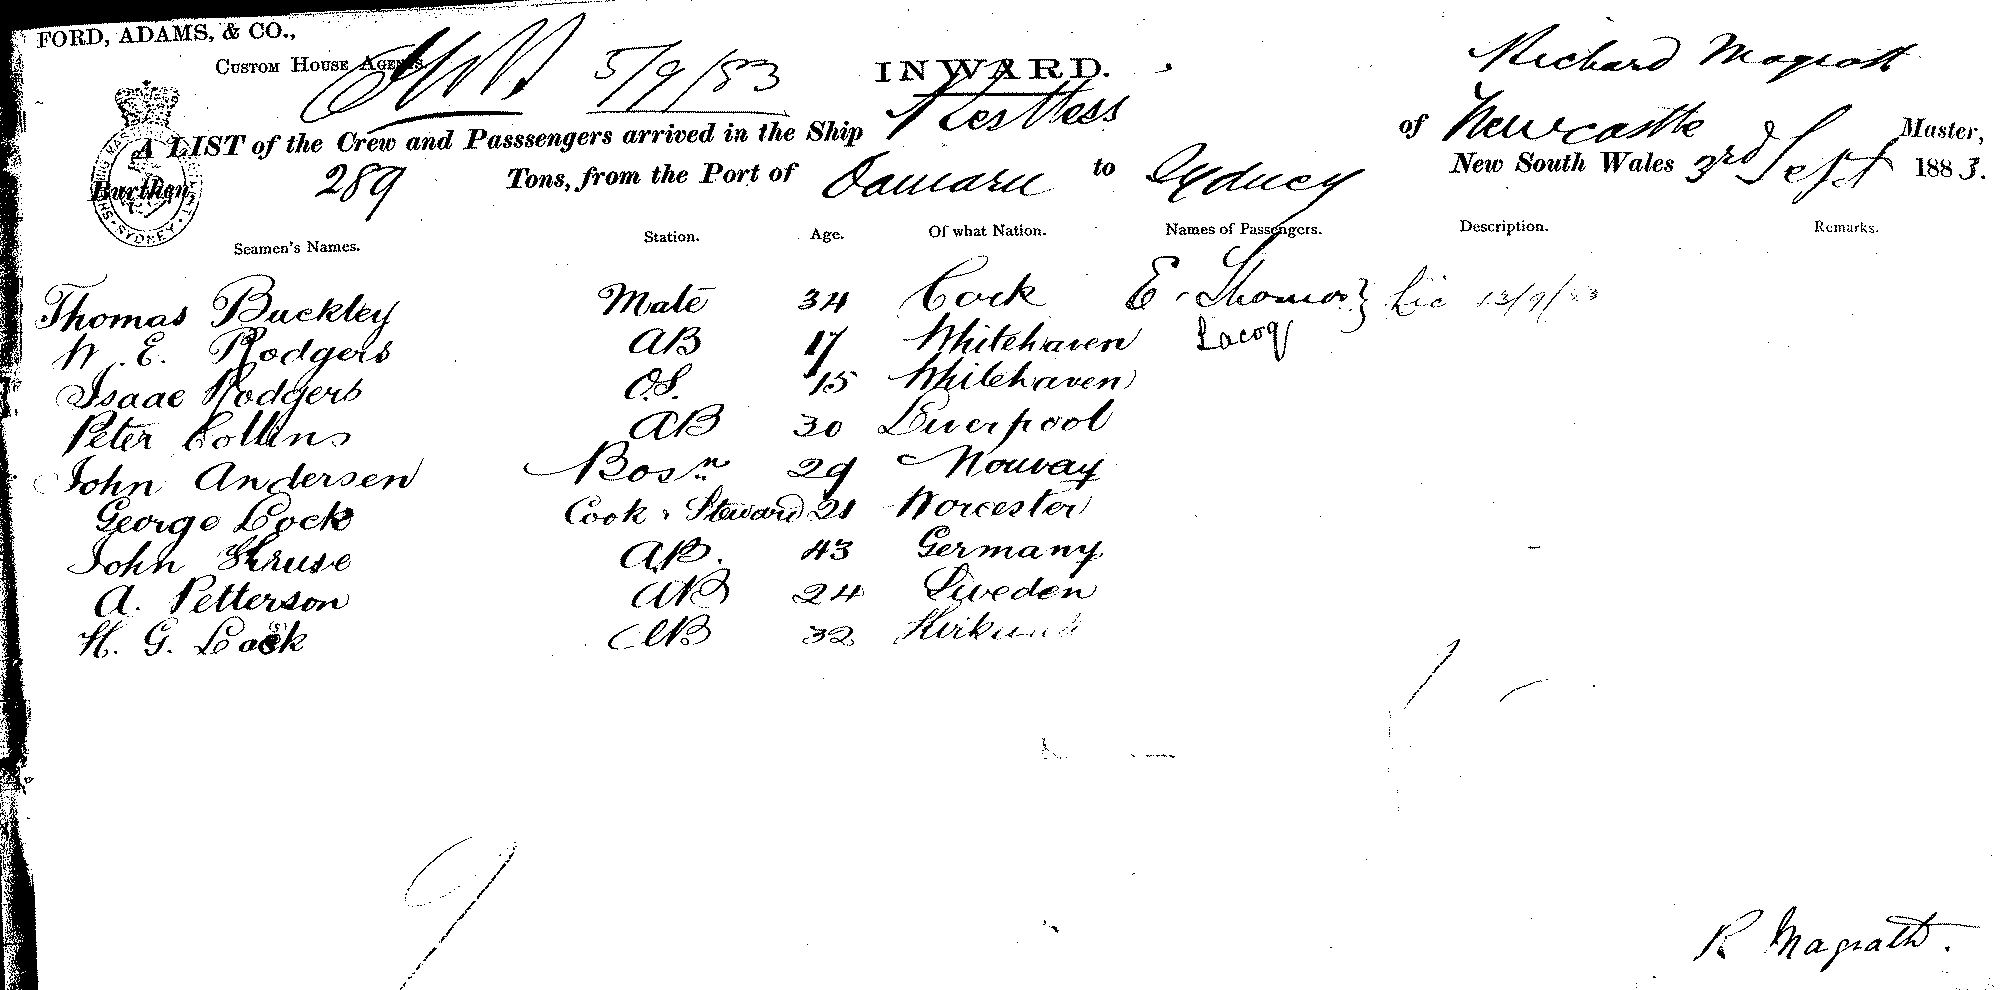 FORD, ADAMS, & CO.,
CUSTOM HOUSE AGENTS.
5/9/83
INWARD.
Richard Magrath
A LIST of the Crew and Passsengers arrived in the Ship Restless of Newcastle Master,
Burthen, 289 Tons, from the Port of Oamaru to Sydney New South Wales 3rd Sept 1883.
Seamen's Names. Station. Age. Of what Nation. Names of Passengers. Description. Remarks.
Thomas Buckley Mate 34 Cork E. Thomas } Lic 13/9/83
W. E. Rodgers AB 17 Whitehaven Lacoq
Isaac Rodgers O.S. 15 Whitehaven
Peter Collins AB 30 Liverpool
John Andersen Bosn 29 Norway
George Lock Cook & Steward 21 Worcester
John Kruse A.B. 43 Germany
A. Petterson AB 24 Sweden
H. G. AB 32
9
R Magrath.